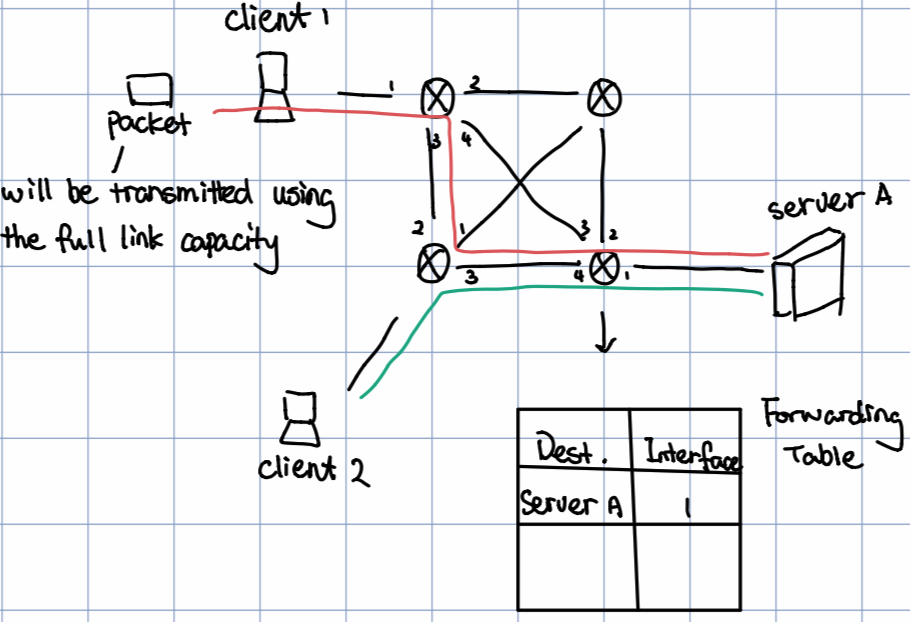 client 1
packet
will be transmitted using
the full link capacity
1
2
3 4
2 1
3
3 2
4 1
server A
client 2
Forwarding
Table
Dest. Interface
Server A 1